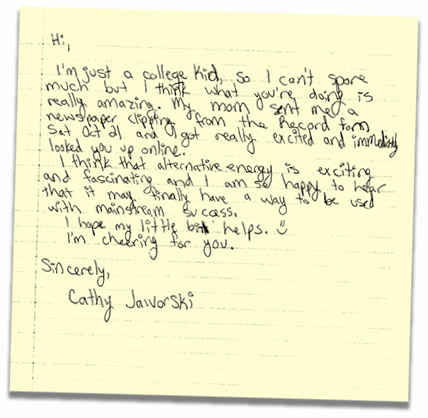 Hi,
I'm just a college kid, so I can't spare
much but I think what you're doing is
really amazing. My mom sent me a
newspaper clipping from the Record form
Sat Oct 21 and I got really excited and immediately
looked you up online.
I think that alternative energy is exciting
and fascinating and I am so happy to hear
that it may finally have a way to be used
with mainstream success.
I hope my little bit helps. ☺
I'm cheering for you.
Sincerely,
Cathy Jaworski